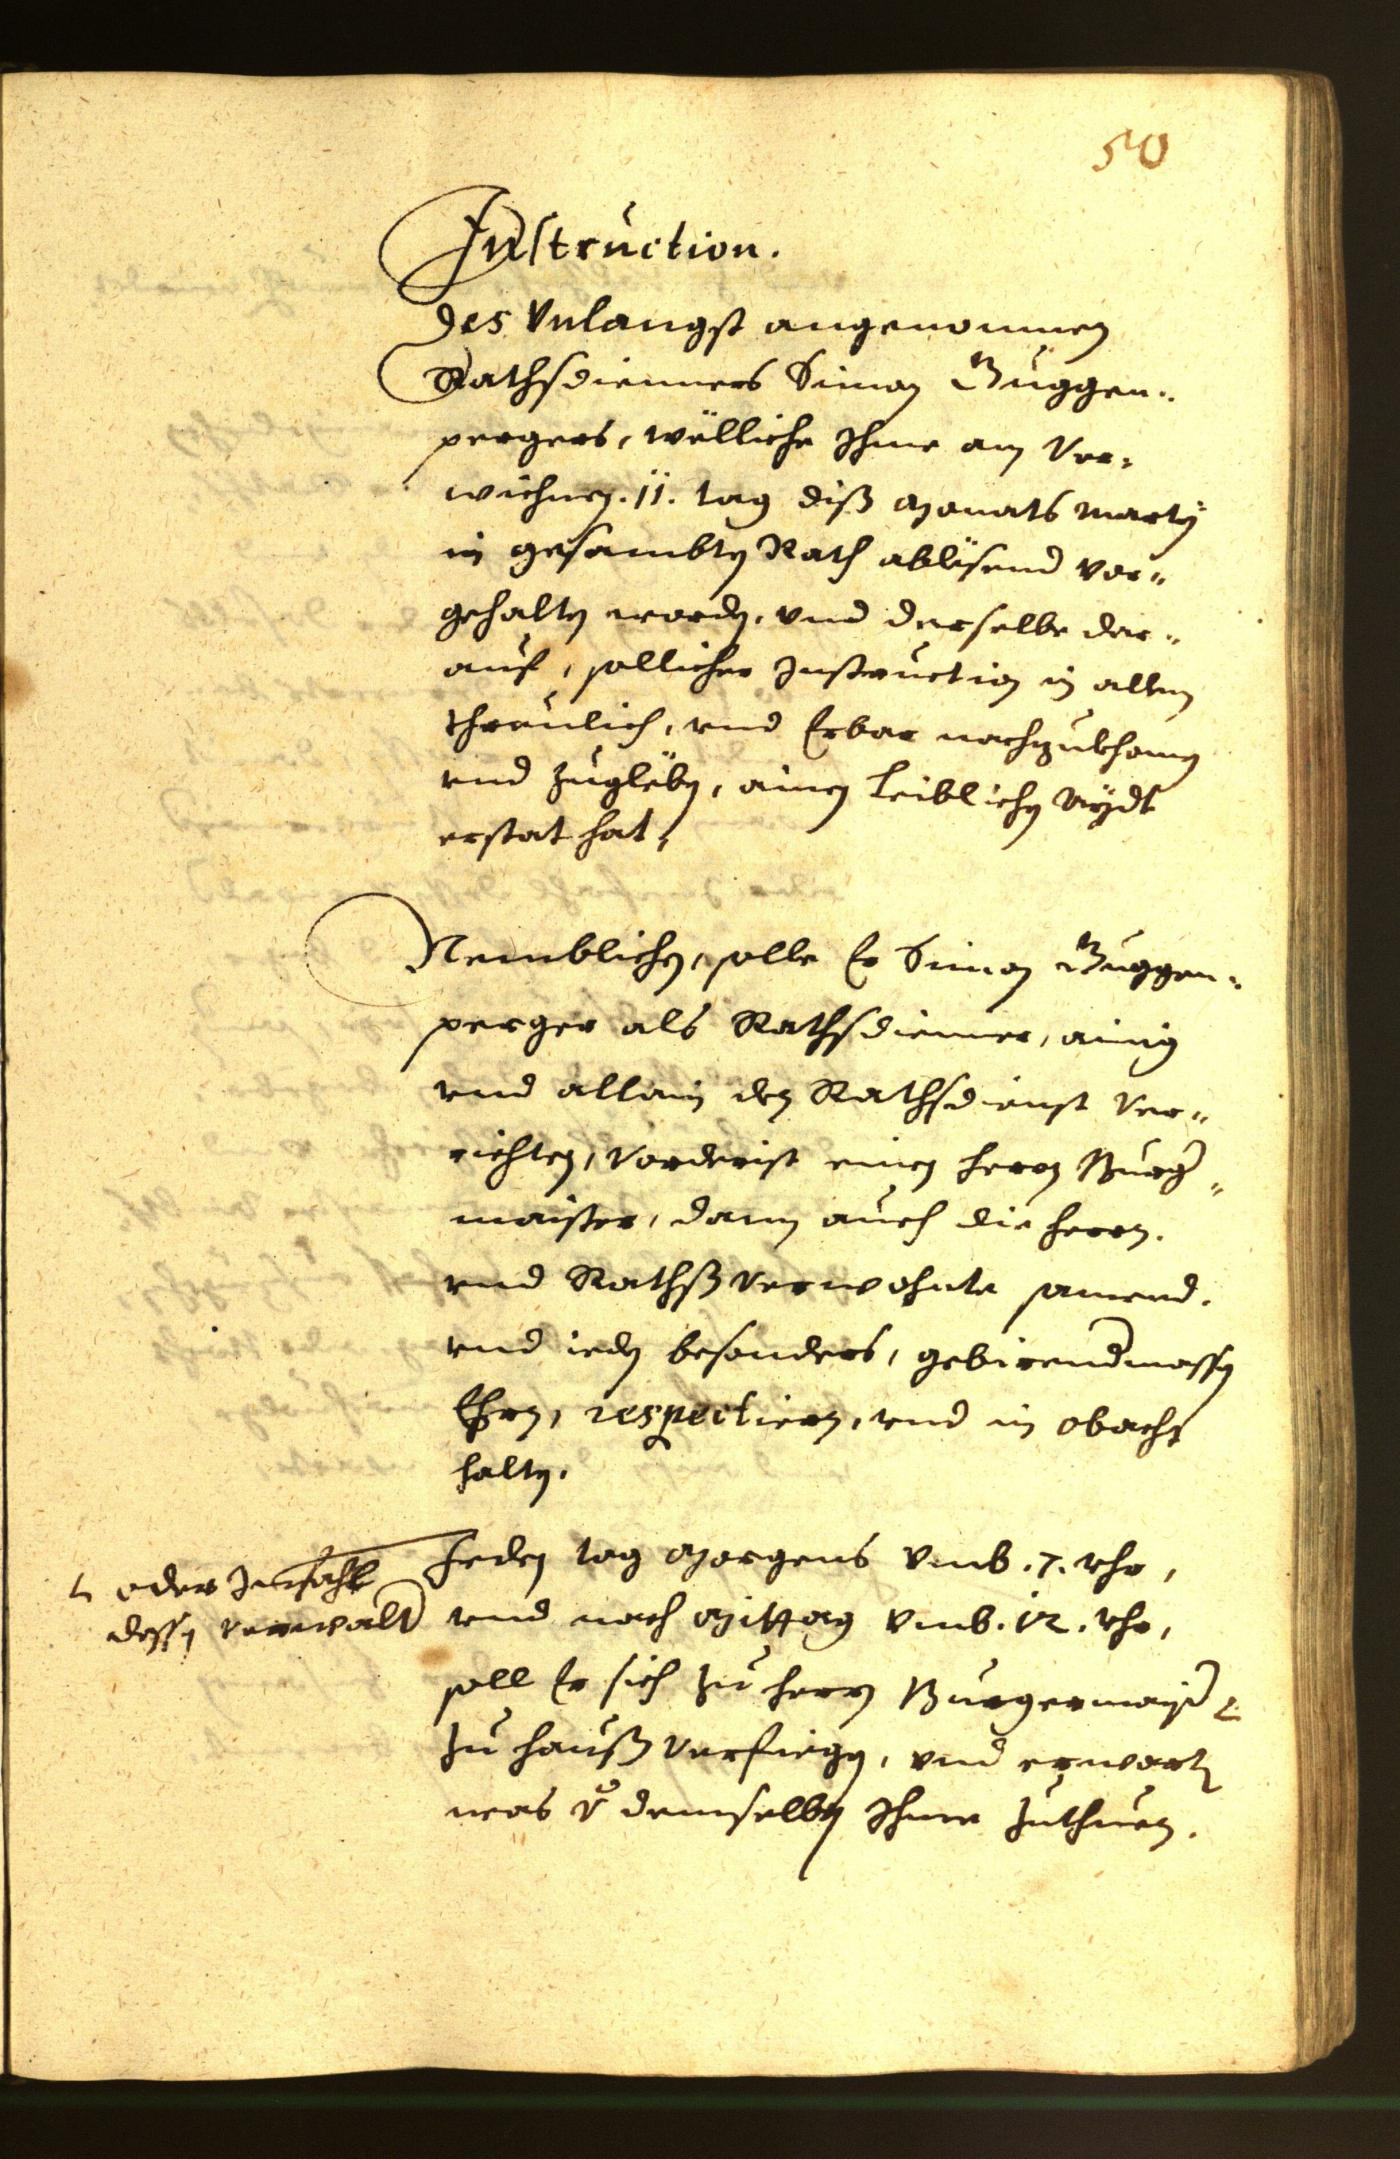 50
Instruction.
Des Vnlangst angenommen
Rathsdienners Simon Buggen„
pergers, wölliche Ihme am Ver„
wichnen .11. tag diß Monats Marty
in gesambten Rath abläsend vor„
gehalten worden, vnd derselbe dar„
auf, sollicher Instruction in allem
threulich, vnd Erbar nachzukhomen
vnd zugläben, ainen Leiblichen Aydt
erstat hat,
Nemblichen, solle Er Simon Buggen„
perger als Rathsdienner, ainig
vnd allain den Rathsdienst Ver„
richten, Vorderist einen herrn Burger„
maister, dann auch die herrn.
vnd Rathß Verwohnte samend.
vnd ieden besonders, gebirendmassen
Ehrn, respectiern, vnd in obacht
halten.
Jeden tag Morgens Vmb .7. vhr,
oder Imfahl
dessen verwalter
vnd nach Mittag Vmb .12. vhr,
soll Er sich zu herrn Burgermaister
zu hauß Verfiegen, vnd erwarten
was von demselben Ihme zuthuen.